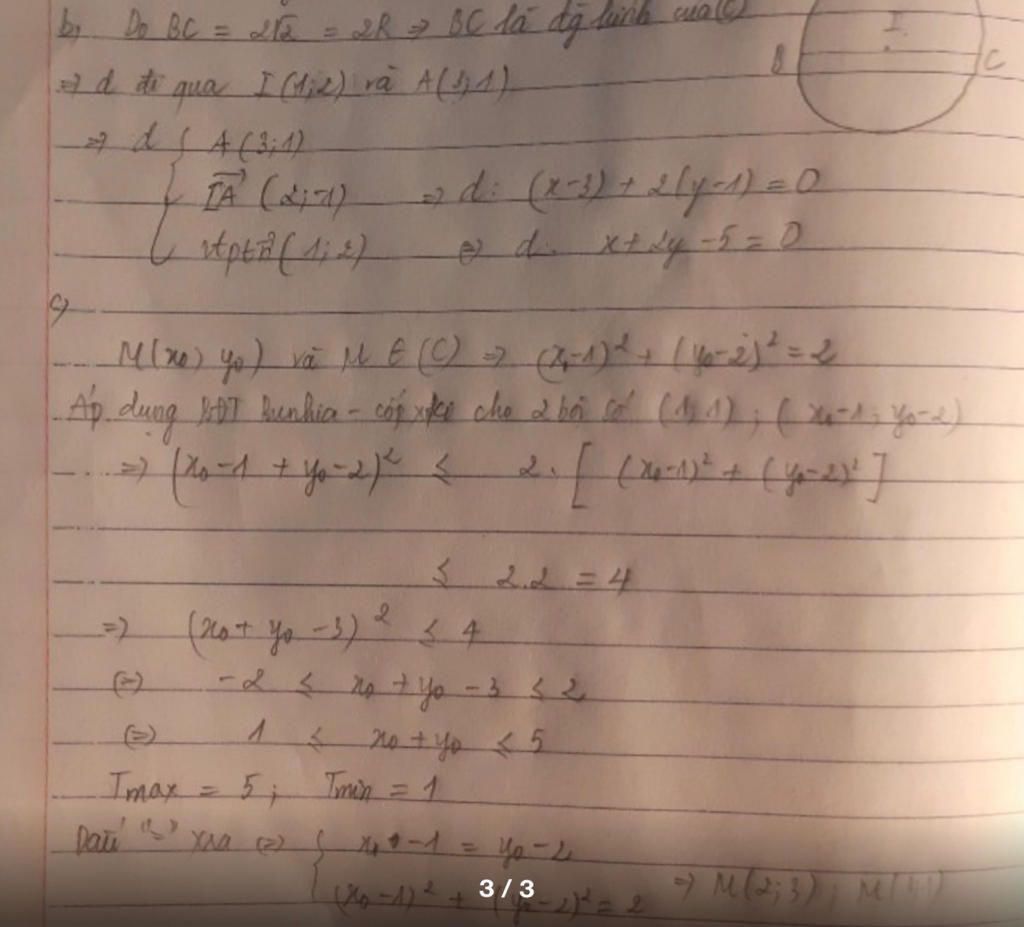 b, Do BC = 2√2 = 2R => BC là đg kính của (C)
I
B C
=> d đi qua I(1;2) và A(3;1)
=> d { A(3;1)
IA→ (2;-1) => d: (x-3) + 2(y-1) = 0
vtpt n→ (1;2) <=> d: x+2y-5=0
c)
M(x₀; y₀) và M ∈ (C) => (x₀-1)² + (y₀-2)² = 2
Áp dụng BĐT Bunhia-cốp xki cho 2 bối số (1;1); (x₀-1; y₀-2)
=> (x₀-1 + y₀-2)² ≤ 2. [(x₀-1)² + (y₀-2)²]
≤ 2.2 = 4
=> (x₀ + y₀ -3)² ≤ 4
(=) -2 ≤ x₀ + y₀ - 3 ≤ 2
(=) 1 ≤ x₀ + y₀ ≤ 5
Tmax = 5; Tmin = 1
Dấu "=" xra (=) { x₀ -1 = y₀ -2
(x₀-1)² + (y₀-2)² = 2 => M(2;3); M(
3 / 3